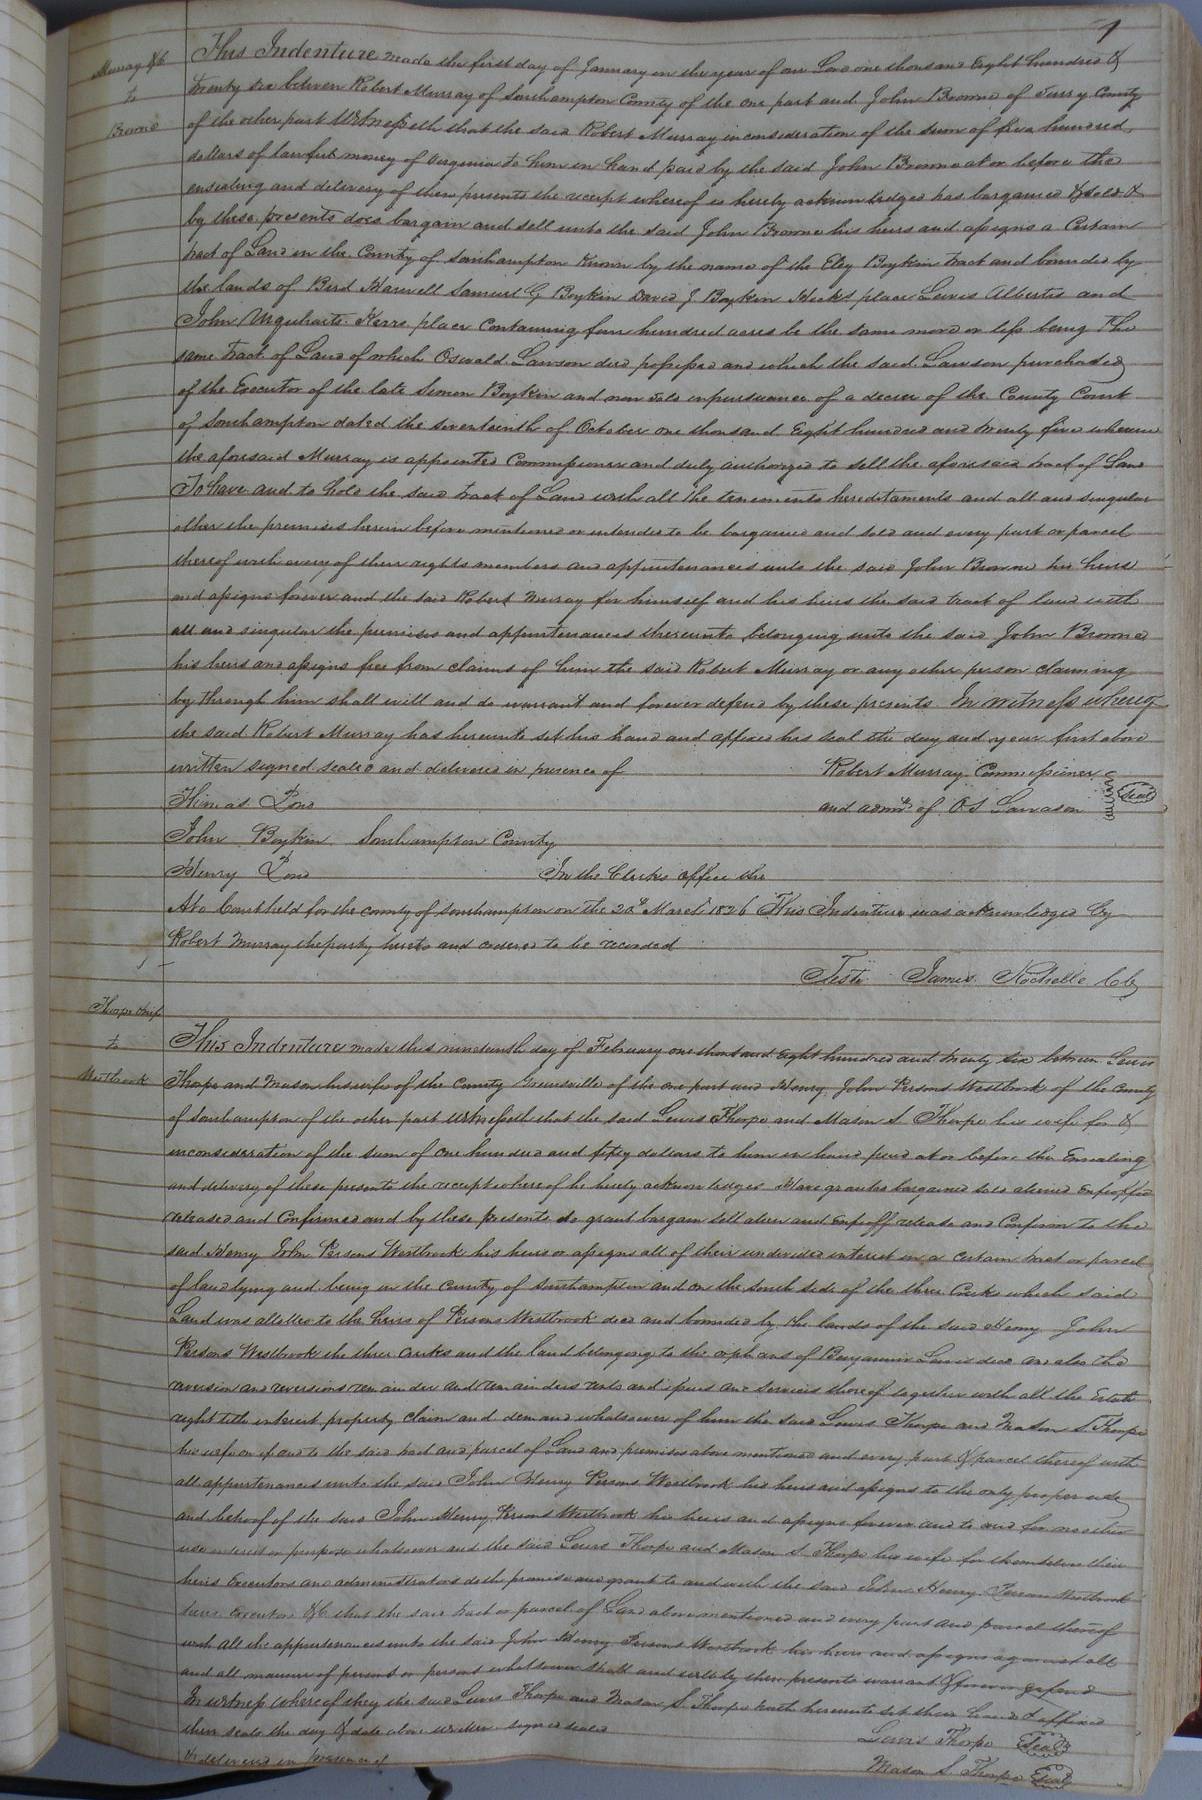 1
Murray &c
to
Browne
This Indenture made the first day of January in the year of our Lord one thousand Eight hundred &
twenty six between Robert Murray of Southampton County of the one part and John Browne of Surry County
of the other part Witnesseth that the said Robert Murray in consideration of the sum of five hundred
dollars of lawful money of Virginia to him in hand paid by the said John Browne at or before the
ensealing and delivery of these presents the receipt whereof is hereby acknowledged has bargained & sold &
by these presents does bargain and sell unto the said John Browne his heirs and assigns a Certain
tract of Land in the County of Southampton Known by the name of the Eley Boykin tract and bounded by
the lands of Bird Harwell Samuel G Boykin David J Boykin Hicks place Lewis Alberties and
John Urquharts Kerrs place Containing four hundred acres be the same more or less being the
same tract of Land of which Oswald Lawson died possessed and which the said Lawson purchased
of the Executor of the late Simon Boykin and now sold in pursuance of a decree of the County Court
of Southampton dated the seventeenth of October one thousand Eight hundred and twenty five wherein
the aforsaid Murray is appointed Commissioner and duly authorized to sell the aforesaid tract of Land
To have and to hold the said tract of Land with all the tenements hereditaments and all and singular
other the premises herein before mentioned or intended to be bargained and sold and every part or parcel
thereof with every of their rights members and appurtenances unto the said John Browne his heirs
and assigns forever and the said Robert Murray for himself and his heirs the said tract of land with
all and singular the premises and appurtenances thereunto belonging unto the said John Browne
his heirs and assigns free from claims of him the said Robert Murray or any other person claiming
by through him shall will and do warrant and forever defend by these presents In witness whereof
the said Robert Murray has hereunto set his hand and affixed his seal the day and year first above
written signed sealed and delivered in presence of Robert Murray Commissioner
and admr of O S Lawson Seal
John Boykin Southampton County
Henry In the Clerks office the
At a Court held for the county of Southampton on the 20th March 1826 This Indenture was acknowledged by
Robert Murray the party hereto and ordered to be recorded
Teste James Rochelle Clk
Thorpe & wife
to
Westbrook
This Indenture made this nineteenth day of February one thousand Eight hundred and twenty six between Lewis
Thorpe and Mason his wife of the County Greensville of the one part and Henry John Persons Westbrook of the County
of Southampton of the other part Witnesseth that the said Lewis Thorpe and Mason S Thorpe his wife for &
inconsideration of the sum of one hundred and fifty dollars to him in hand paid at or before the Ensealing
and delivery of these presents the receipt whereof he hereby acknowledges Have granted bargained sold aliened Enfeoffed
released and Confirmed and by these presents do grant bargain sell alien and Enfeoff release and Confirm to the
said Henry John Persons Westbrook his heirs or assigns all of their undivided interest in a certain tract or parcel
of land lying and being in the County of Southampton and on the south side of the three Creeks which said
Land was allotted to the heirs of Persons Westbrook decd and bounded by the lands of the said Henry John
Persons Westbrook the three creeks and the land belonging to the orphans of Benjamin Lewis decd and also the
reversion and reversions remainder and remainders rents and issues and services thereof together with all the Estate
right title interest property claim and demand whatsoever of him the said Lewis Thorpe and Mason S Thorpe
his wife in of and to the said tract and parcel of Land and premises above mentioned and every part & parcel thereof with
all appurtenances unto the said John Henry Persons Westbrook his heirs and assigns to the only proper use
and behoof of the said John Henry Persons Westbrook his heirs and assigns forever and to and for no other
use interest or purpose whatsoever and the said Lewis Thorpe and Mason S Thorpe his wife for themselves their
heirs Executors and administrators doth promise and grant to and with the said John Henry Persons Westbrook
heirs Executors &c that the said tract or parcel of Land above mentioned and every part and parcel thereof
with all the appurtenances unto the said John Henry Persons Westbrook his heirs and assigns against all
and all manner of person or persons whatsoever shall and will by these presents warrant & forever defend
In witness whereof they the said Lewis Thorpe and Mason S. Thorpe hath hereunto set their hands & affixed
their seals the day & date above written signed sealed
& delivered in presence of Lewis Thorpe Seal
Mason S. Thorpe Seal